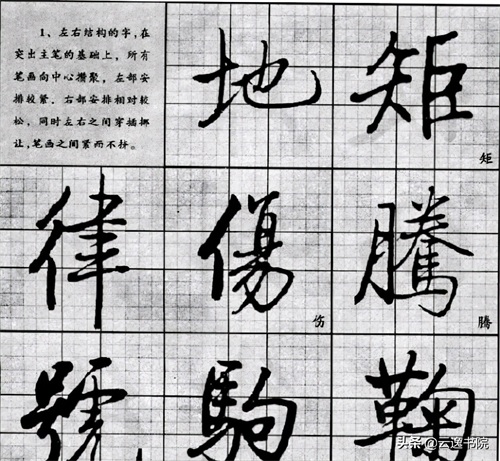 1、左右结构的字，在
突出主笔的基础上，所有
笔画向中心攒聚，左部安
排较紧，右部安排相对较
松，同时左右之间穿插挪
让，笔画之间紧而不挤。
地 矩
矩
律 傷 騰
伤 腾
號 駒 鞠
头条@云逸书院